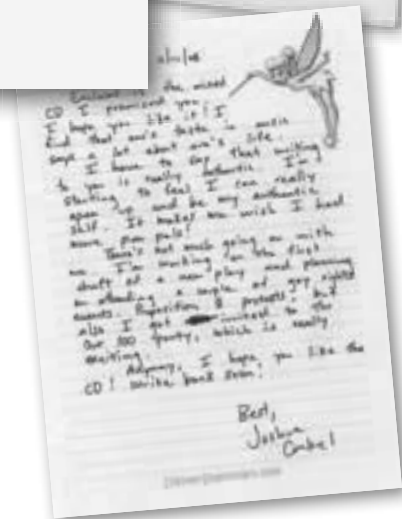 the mixed
CD I promised you.
I hope you like it! I
find that one's taste in music
says a lot about one's life.
I have to say that writing
to you is really authentic. I'm
starting to feel I can really
open up and be my authentic
self. It makes me wish I had
more pen pals!
There's not much going on with
me. I'm working on the first
draft of a new play and planning
on attending a couple of gay rights
events. Proposition 8 protests! but
also I got invited to the
Out 100 party, which is really
exciting.
Anyway, I hope you like the
CD! Write back soon!
Best,
Joshua